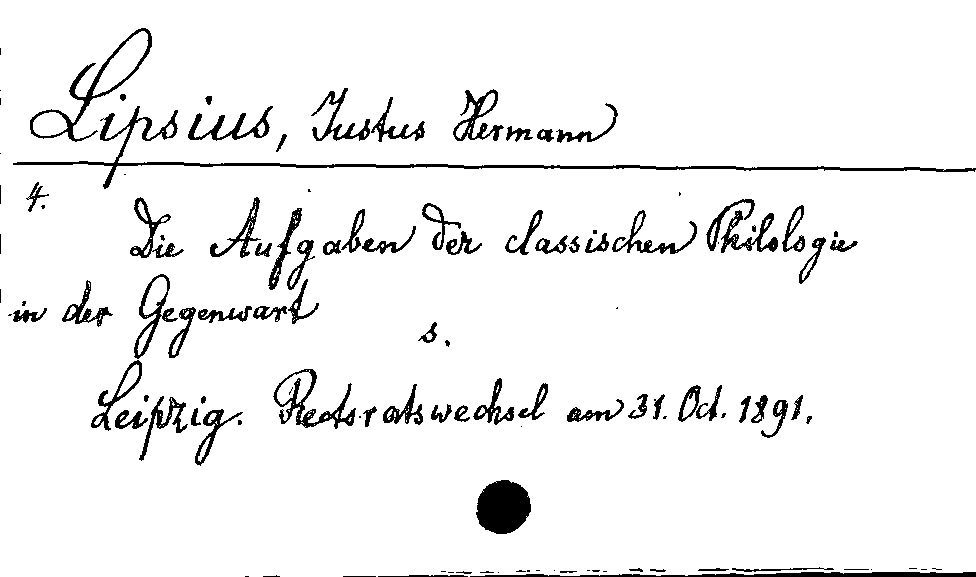 Lipsius, Justus Hermann
4.
Die Aufgaben der classischen Philologie
in der Gegenwart
s.
Leipzig. Rectoratswechsel am 31. Oct. 1891.